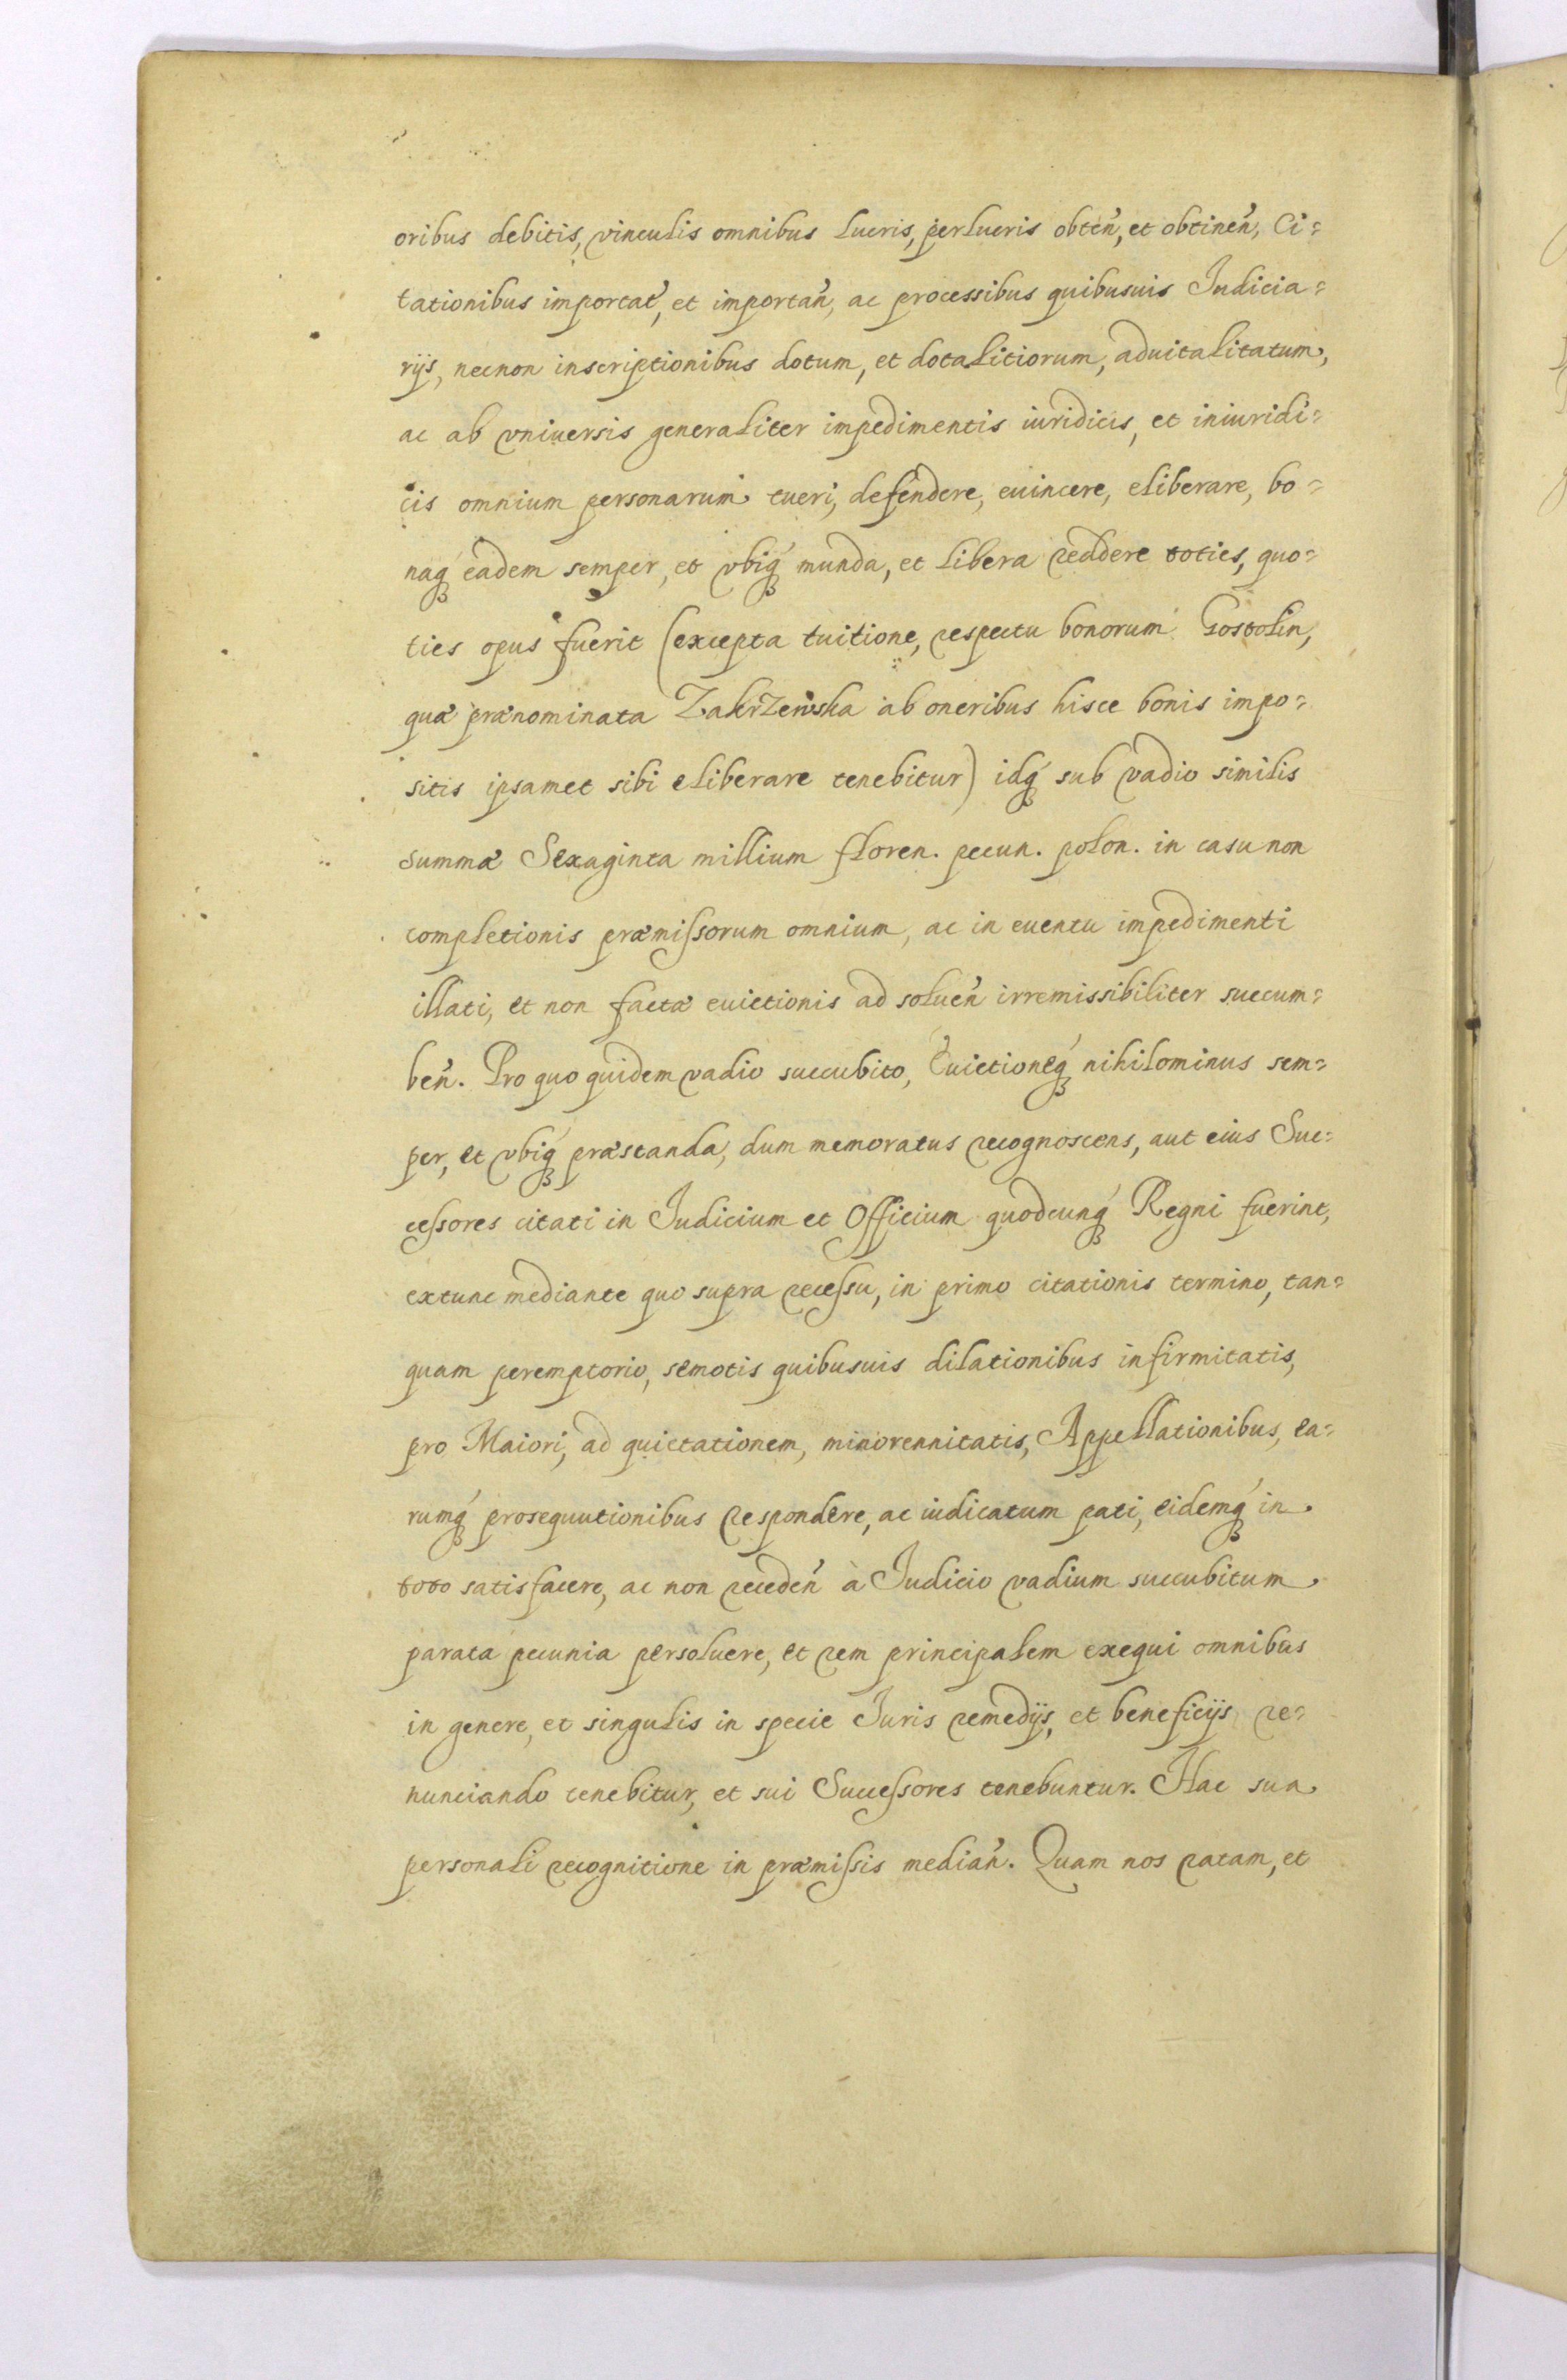 oribus debitis, vinculis omnibus lucris, perlucris obten̉, et obtinen̉, Ci=
tationibus importat̉, et importan̉, ac processibus quibusuis Iudicia=
rijs, necnon inscriptionibus dotum, et dotalitiorum, aduitalitatum,
ac ab vniuersis generaliter impedimentis iuridicis, et iniuridi=
cis omnium personarum tueri, defendere, euincere, eliberare, bo=
naq́ eadem semper, et vbiq́ munda, et libera reddere toties, quo=
ties opus fuerit (excepta tuitione, respectu bonorum Gostolin,
quæ prænominata Zakrzewska ab oneribus hisce bonis impo=
sitis ipsamet sibi eliberare tenebitur) idq́ sub vadio similis
summæ Sexaginta millium floren. pecun. polon. in casu non
completionis præmissorum omnium, ac in euentu impedimenti
illati, et non factæ euictionis ad soluen̉ irremissibiliter succum=
ben̉. Pro quo quidem vadio succubito, Euictioneq́ nihilominus sem=
per, et vbiq́ præstanda, dum memoratus recognoscens, aut eius Suc=
cessores citati in Iudicium et Officium quodcunq́ Regni fuerint,
extunc mediante quo supra recessu, in primo citationis termino, tan=
quam peremptorio, semotis quibusuis dilationibus infirmitatis,
pro Maiori, ad quictationem, minorennitatis, Appellationibus, ea=
rumq́ prosequutionibus respondere, ac iudicatum pati, eidemq́ in
toto satisfacere, ac non receden̉ à Iudicio vadium succubitum
parata pecunia persoluere, et rem principalem exequi omnibus
in genere, et singulis in specie Iuris remedijs, et beneficijs re=
nunciando tenebitur, et sui Successores tenebuntur. Hac sua
personali recognitione in præmissis median̉. Quam nos ratam, et